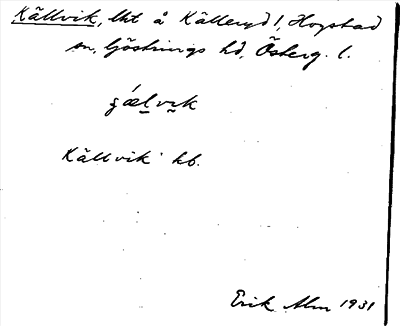 Källvik, lht å Källeryd 1, Hogstad
sn, Göstrings hd, Österg. l.
Källvik hb.
Erik Alm 1931